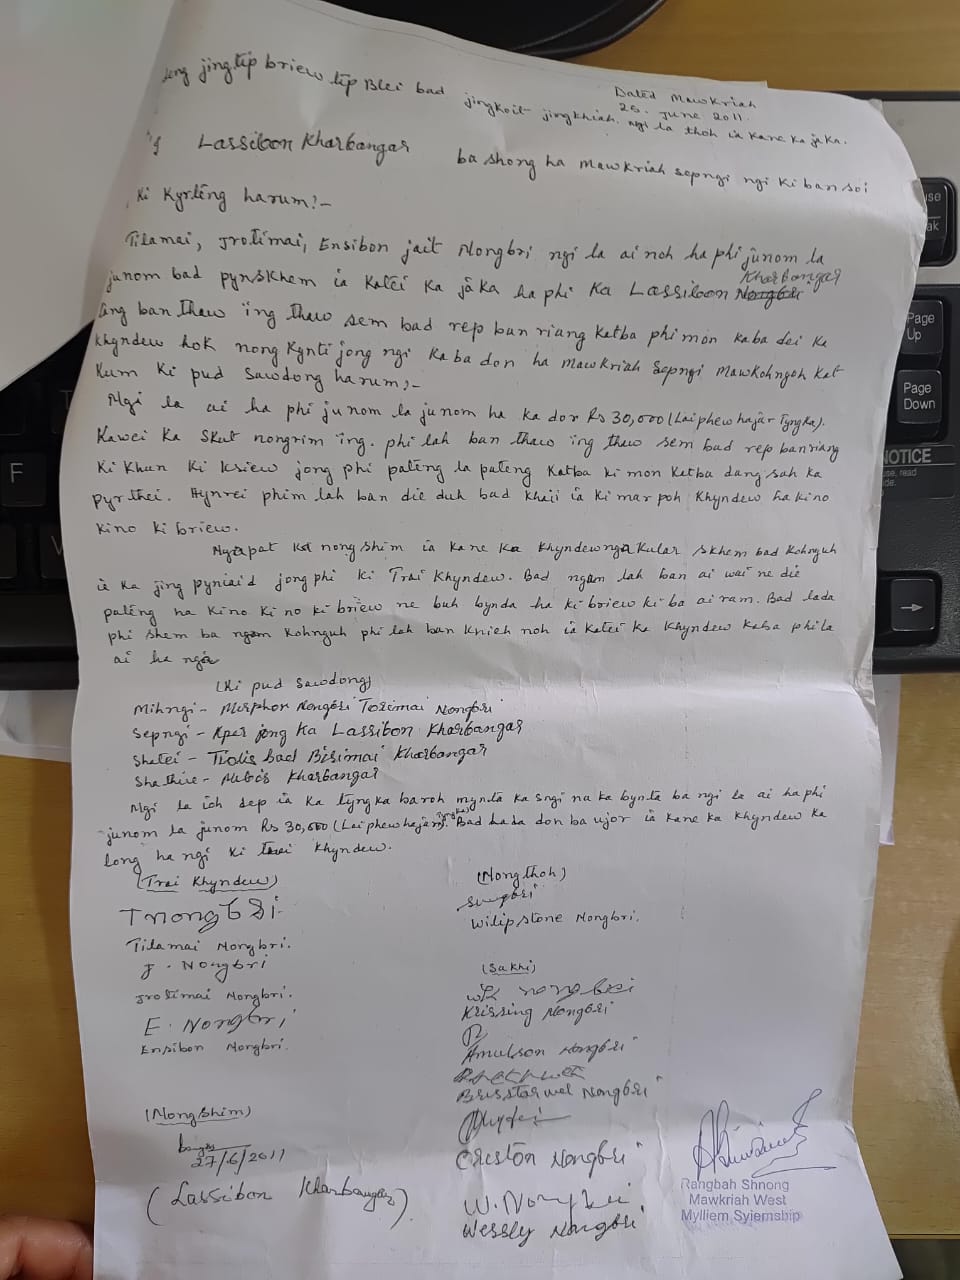 jingtip briew tip Blei bad jingkoit jingkhiah. ngi la thoh ia kane ka jaka.
Dated Mawkriah
25. June 2011.
Lassibon Kharbangar ba shong ha Mawkriah sepngi ngi ki ban soi
Ki Kyrteng harum:-
Tilamai, Jrotimai, Ensibon jait Nongbri ngi la ai noh ha phi junom la
junom bad pynskhem ia katei ka jaka ha phi ka Lassibon Kharbangar
ban thaw ïng thaw sem bad rep ban riang katba phi mon kaba dei ka
khyndew hok nong kynti jong ngi kaba don ha Mawkriah sepngi Mawkohngoh kat
kum ki pud sawdong harum:-
Ngi la ai ha phi junom la junom ha ka dor Rs 30,000 (Lai phew hajar Tyngka).
Kawei ka skut nongrim ïng. phi lah ban thaw ïng thaw sem bad rep ban riang
ki khun ki ksiew jong phi pateng la pateng katba ki mon katba dang sah ka
pyrthei. Hynrei phim lah ban die duh bad khaii ia ki mar poh khyndew ha kino
kino ki briew.
Nga pat ka nong shim ia kane ka khyndew nga kular skhem bad kohnguh
ia ka jing pyniaid jong phi ki Trai Khyndew. Bad ngam lah ban ai wai ne die
pateng ha kino kino ki briew ne buh bynda ha ki briew kiba ai ram. Bad lada
phi shem ba ngam kohnguh phi lah ban knieh noh ia katei ka khyndew kaba phi la
ai ha nga
(Ki pud sawdong)
Mihngi - Mesphor Nongbri Torimai Nongbri
Sepngi - Kper jong ka Lassibon Kharbangar
Shatei - Tiolis bad Bisimai Kharbangar
Shathie - Kharbangar
Ngi la ioh dep ia ka tyngka baroh mynta ka sngi na ka bynta ba ngi la ai ha phi
junom la junom Rs 30,000 (Lai phew hajar Tyngka). Bad lada don ba ujor ia kane ka khyndew ka
long ha ngi ki trai khyndew.
(Trai Khyndew)
TNongbri
Tilamai Nongbri.
J. Nongbri
Jrotimai Nongbri.
E. Nongbri
Ensibon Nongbri.
(Nongshim)
27/6/2011
(Lassibon Kharbangar)
(Nongthoh)
Wilipstone Nongbri.
(Sakhi)
Nongbri
Krissing Nongbri
Amulson Nongbri
Brisstarwel Nongbri
Creston Nongbri
W. Nongbri
Wessly Nongbri
Rangbah Shnong
Mawkriah West
Mylliem Syiemship